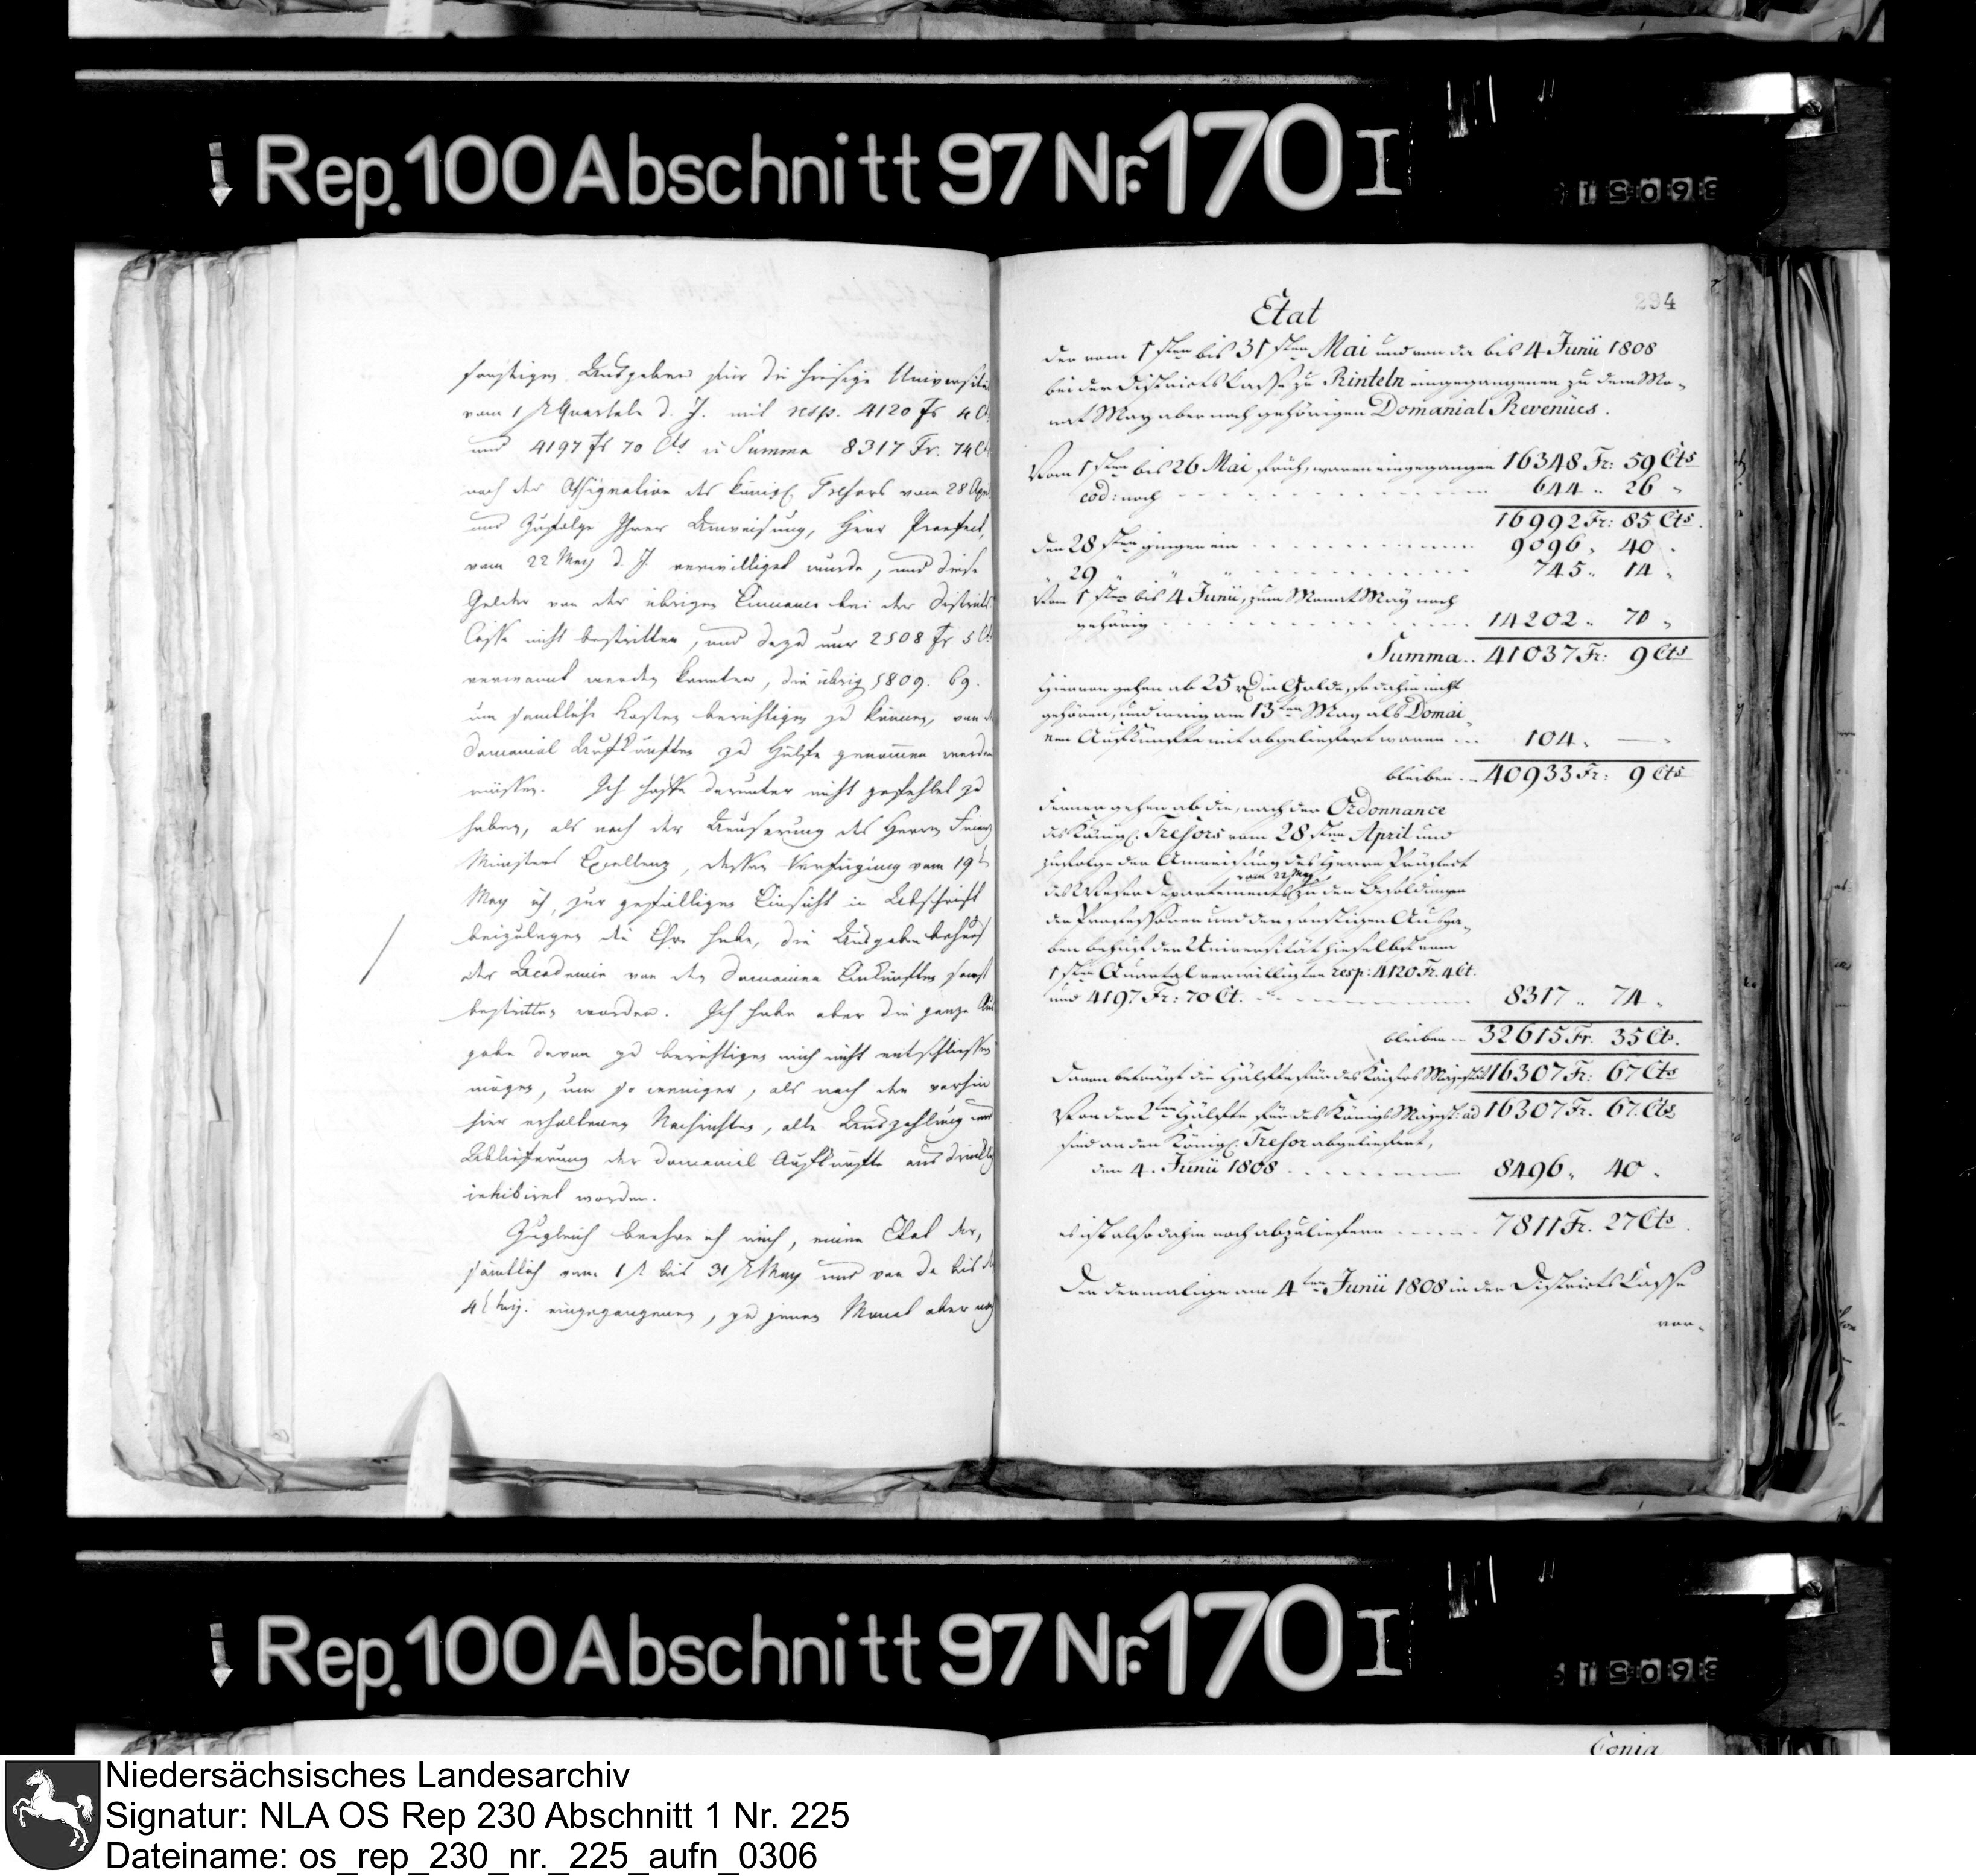 Rep. 100 Abschnitt 97 Nr. 170 I
36051
sonstigen Ausgaben für die hiesige Universität
vom 1st Quartale d. J. mit resp. 4120 Fr 4 Ct
und 4197 Fr 70 Cts in Summa 8317 Fr. 74 Ct
nach der Assignation des königl. Tresors vom 28 Apr
und zufolge Ihrer Anweisung, Herr Praefect,
vom 22 May d. J. verwilliget wurde, und diese
Gelder von der übrigen Einnahme bei der Districts
Casse nicht bestritten, und dazu nur 2508 Fr 5 Ct
verwannt werden konnten, die übrig 5809. 69.
um samtliche Kosten berichtigen zu können, von d
Domanial Aufkünften zu Hülfe genommen werden
müssen. Ich hoffe darunter nicht gefehlet zu
haben, als nach der Aeuserung des Herrn Finanz
Ministers Excellenz, dessen Verfügung vom 19t
May ich, zur gefälligen Einsicht in Abschrift
beizulegen die Ehre habe, die Ausgaben behuf
der Academie von den Domainen Einkünften sonst
bestritten worden. Ich habe aber die ganze Aus
gabe davon zu berichtigen mich nicht entschliessen
mögen, um so weniger, als nach den vorhin
hier erhaltenen Nachrichten, alle Auszahlung und
Ablieferung der Domanial Aufkünfte
inhibiret worden.
Zugleich beehre ich mich, einen Etat der,
sämtlich vom 1st bis 31st May und von da bis d
4t huj: eingegangenen, zu jenem Monat aber noch
284
Etat
der vom 1sten bis 31sten Mai und von da bis 4 Junii 1808
bei der Districts Casse zu Rinteln eingegangenen zu dem Mo-
nat May aber noch gehörigen Domanial Revenües.
Vom 1sten bis 26 Mai früh, waren eingegangen 16348 Fr: 59 Cts
eod: noch 644 " 26 "
16992 Fr: 85 Cts.
den 28sten gingen ein 9096 " 40 "
29 " " 745 " 14 "
Vom 1sten bis 4 Junii, zum Monat May noch
gehörig 14202 " 70 "
Summa .. 41037 Fr: 9 Cts
Hiervon gehen ab 25 rl in Golde, so dahin nicht
gehören, und irrig am 13ten May als Domai-
nen Aufkünfte mit abgeliefert waren ... 104 " — "
bleiben .. 40933 Fr: 9 Cts
Ferner gehen ab die, nach der Ordonnance
des Königl. Tresors vom 28sten April und
zufolge der Anweisung des Herrn Präfect
des Weser Departements vom 22 May zu den Besoldungen
der Professoren und den sonstigen Ausga-
ben behuf der Universität hieselbst vom
1sten Quartal verwilligten resp: 4120 Fr. 4 Ct.
und 4197 Fr: 70 Ct. 8317 " 74 "
bleiben .. 32615 Fr. 35 Cts.
Davon beträgt die Hälfte für des Kaisers Majestät 16307 Fr: 67 Cts
Von der 2ten Hälfte für des Königs Majest: ad 16307 Fr. 67 Cts
sind an den Königl. Tresor abgeliefert,
den 4. Junii 1808 8496 " 40 "
es ist also dahin noch abzuliefern 7811 Fr. 27 Cts.
Der dermalige am 4ten Junii 1808 in der Districts Casse
vor-
Rep. 100 Abschnitt 97 Nr. 170 I
36051
Niedersächsisches Landesarchiv
Signatur: NLA OS Rep 230 Abschnitt 1 Nr. 225
Dateiname: os_rep_230_nr._225_aufn_0306